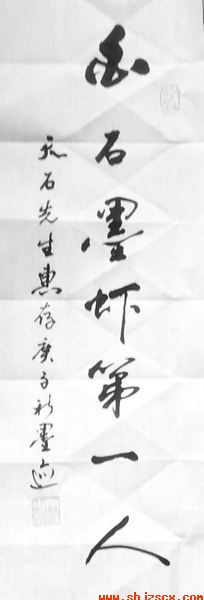 白石墨虾第一人
石先生惠存庚子
墨
www.shjzscx.com